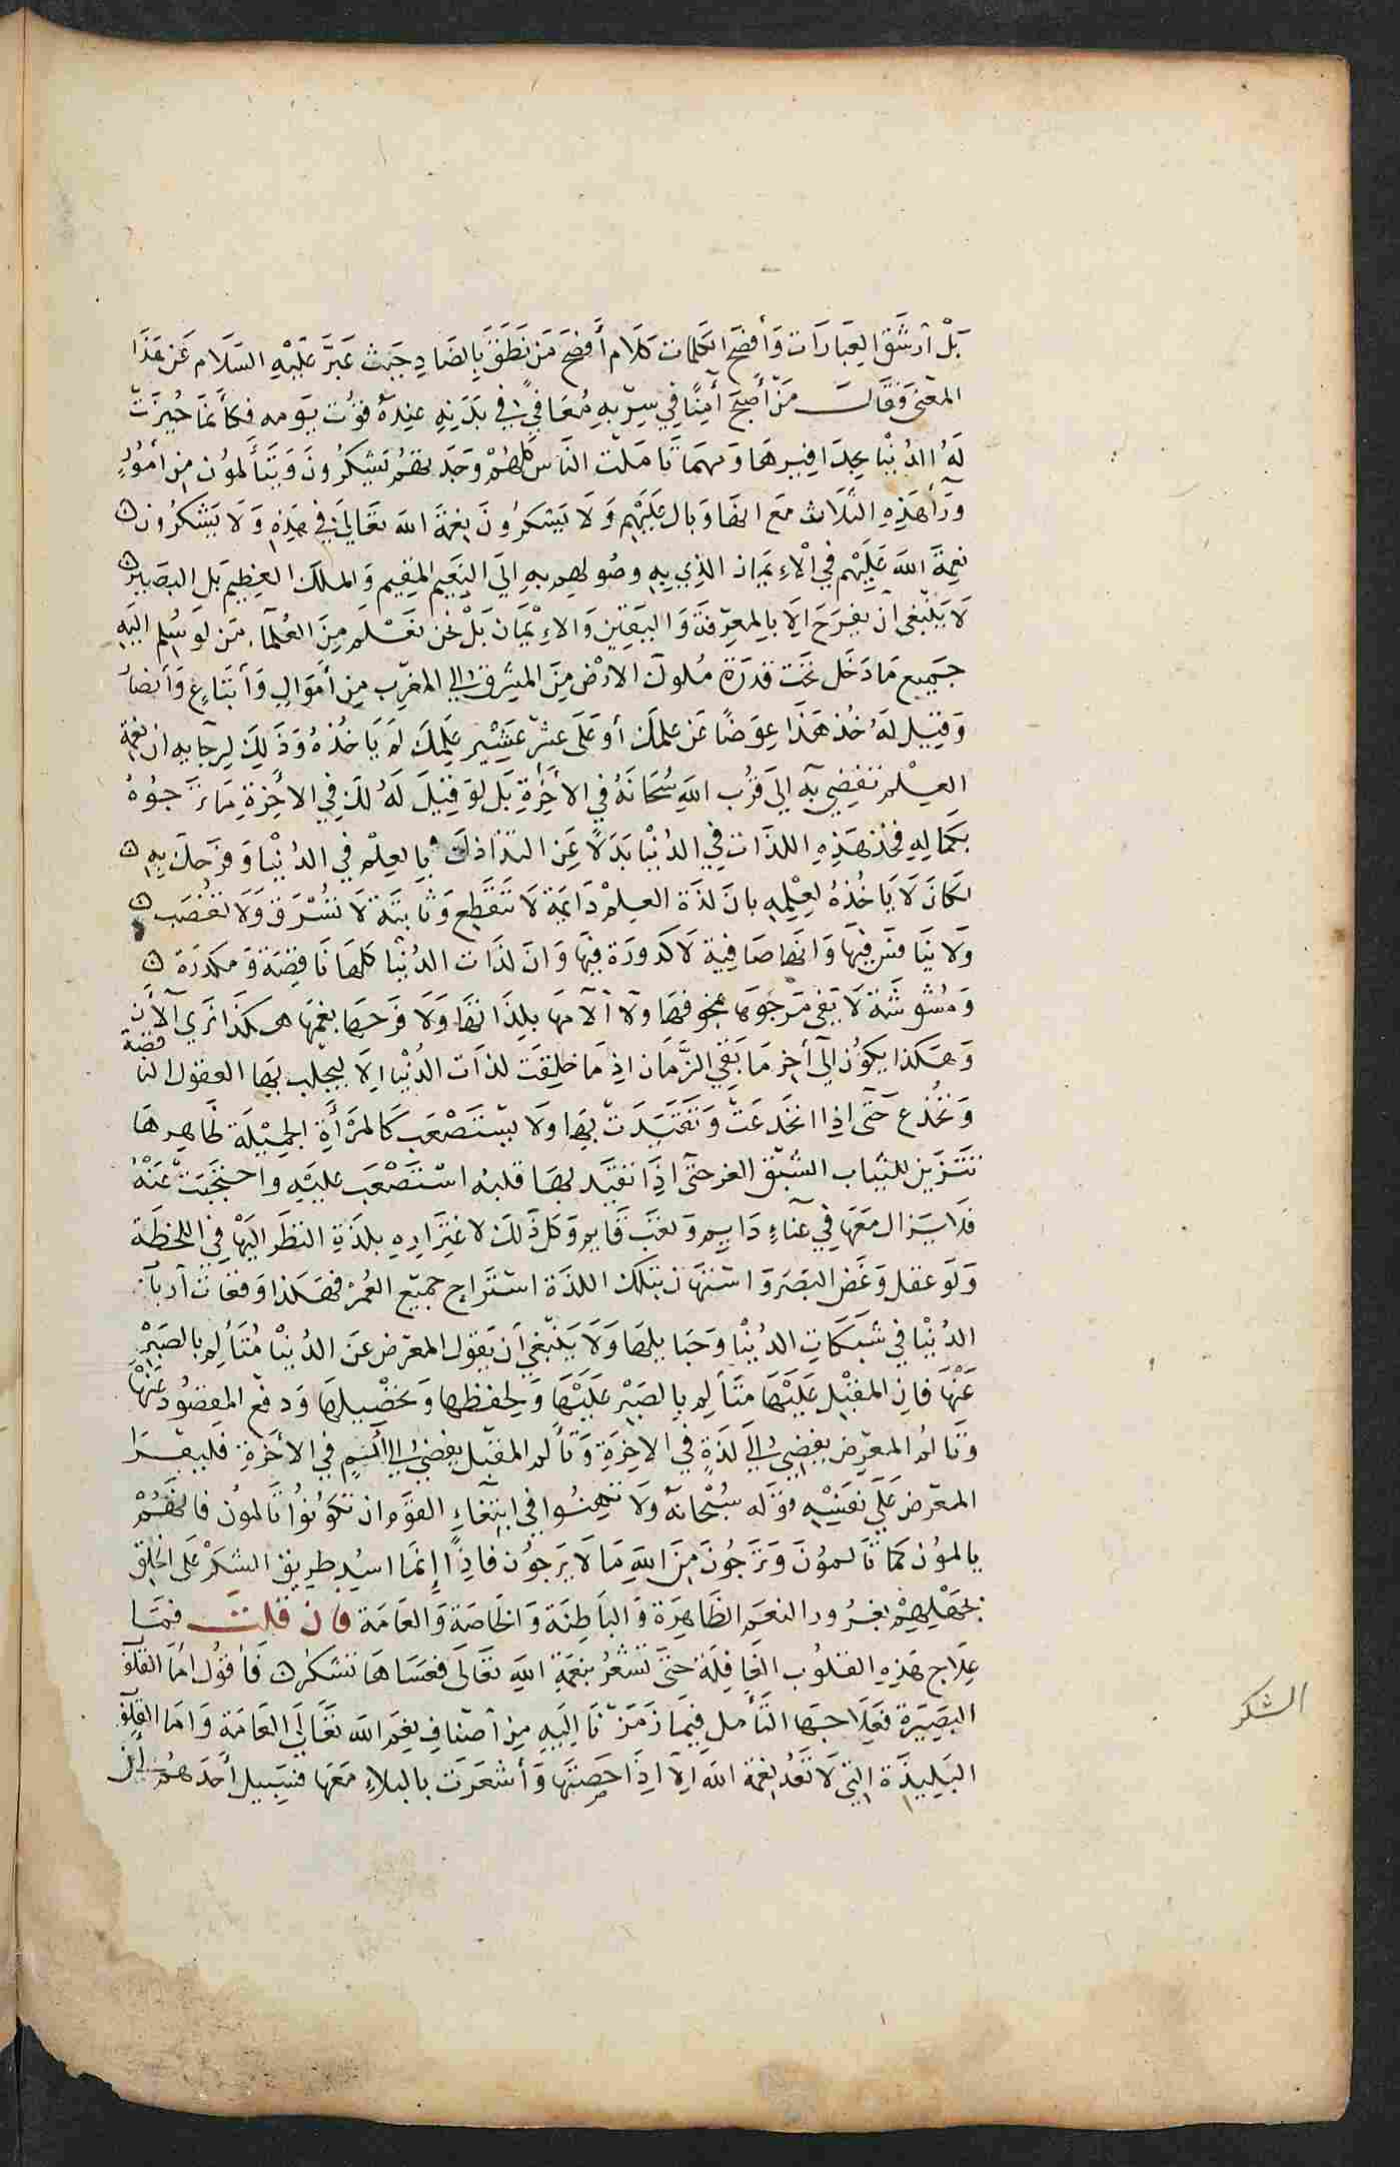 بَلْ أرشَق العِبَارَات وَأفصَح الكَلمات كَلَام أَفصَح مَن نَطَقَ بِالضَادِ حَيث عَبرَّ عَلَيْهِ السَلَام عَن هَذَا
المعنى فَقَالَ مَنْ أَصبحَ آمِنًا فِي سِرْبِهِ مُعَافي فِي بَدَنِهِ عِندَهُ قوُت يَومه فكأَنما حُيزَت
لَهُ الدُنْيا بِحِذَافِيرهَا وَمهمَا تَأمَلت النَاس كلهُمْ وَجَدتهُم يَشكرُونَ وَيَتَأَلموُن مِن أموُرٍ
وَرَآ هَذِهِ الثَلَاث مَع انهَا وَبال عَليَهْم وَلَا يَشكرُونَ نِعْمَة اللَه تعَالىَ في هَذِهِ وَلَا يَشكرُون
نعِمَةَ اللَه عَليَهْم فِي الْاءِيمَان الذِي بِهِ وصُولهم بهِ اِلىَ النَعِيم المقِيم وَالملك العظِيم بَل البصَير
لَا يَنْبَغى أن يفرَح اِلَا بِالمعرِفَة وَاليَقِين وَالاءِيْمَان بَلْ نحن نعَلم مِنَ العُلمآءِ مَن لَوسُلم اليَهِ
جَمِيع مَا دَخَل تَحت قدرَة مُلوك الارْض مِنَ المشِرق إلي المغرب مِن أموَالٍ وَأتبَاعٍ وَأنصَار
وَقِيل لَهُ خُذ هَذَا عِوَضًا عَن عِلمِكَ أو عَلَى عشْر عَشِيْر عِلمِكَ لَم يَاخُذهُ وَذَلِكَ لِرجَآيه ان نعمة
العِلْم تفضِي بَه اِلىَ قرُب اللَهِ سُبحَانَهُ في الأخرَةِ بَل لوَ قيْلَ لَهُ لكَ فِي الاخُرةِ مَا ترَجوُهُ
بكمَالِهِ فخُذ هَذِهِ اللذَات في الدُنْيا بَدَلًا عَنِ التذَاذكَ بِالعِلْم في الدُنْيا وَفرَحكَ بِهِ
لكَانَ لَا يَاخُذهُ لعِلْمِهِ بانَ لذَة العِلْم دَايمَة لَا تَنقطِع وَثابِتَة لَا تسُرَق وَلَا تغُصَب
وَلَا يتَنافسَ فيهَا وَانهَا صَافِية لَا كدورَة فيهَا وَانَ لذَات الدُنْيا كلهَا نَاقِصَة وَمكدرَة
وَمُشوشَة لَا يَفي مَرجُوهَا بمخوفهَا وَلَا آلامهَا بلِذَاتهَا وَلَا فَرَحهَا بغمهَا هَكذَا نرَي الآن
وَهَكذا يكوُن اِلىَ أخِر مَا بَقِي الزَّمَان اذِ مَا خلِقت لذَات الدُنْيا اِلَا ليجلب بهَا العقول الناقصة
وَتخُدع حَتى اذِا انخَدعَت وَتقَيَدَت بهَا وَلَا يسْتصْعَب كالمرَأَة الجميْلَة ظَاهِرهَا
تتزَين للشَباب الشبق الغر حتى اذَِا تقيَد بهَا قلبه اسْتصْعَب عليهِ واحتجَبَتْ عَنهُ
فلَا يزَال مَعَهَا في عَنآءٍ دَايمٍ وَتعَب قَايم وَكل ذَلكَ لاغتِرَارِهِ بلذَةِ النظَر اليهَا في اللحظَة
وَلَو عقل وَغَض البَصَر وَاستهَان بتلكَ اللذَة استرَاح جميَع العُمر فهَكذا وَقعَت أربَاب
الدُنْيا في شبَكَاتِ الدُنيْا وَحَبَايلهَا وَلَا يَنبَغي أن يَقول المعرض عَن الدُنيْا مُتَألم بالصَبْر
عَنْهَا فان المقبْل عَليْهَا متَألم بالصَبْر عَليْهَا وَلحفظهَا وَتحْصيلهَا وَدفعْ المقصُود عَنهْا
وَتَالمُ المعرض يفضِي إلي لَذَةٍ في الاخِرَةِ وَتأَلم المقبل يفضي إلي ألَمٍ في الأخَرةِ فليَقرَا
المعرض عَلَى نفسِهِ قوله سُبْحَانهُ وَلَا تهِنُوا في ابتِغآءِ القوَم ان تكوُنوُا تَالموُن فانهُمْ
يالموُن كمَا تَالموُنَ وَترَجُونَ مِنَ اللَهِ مَا لَا يرَجوُن فاذِاً إنمَا اسُد طريق الشكر عَلى الخلق
بجَهْلِهِمْ بغرُور النعَم الظَاهِرَة وَالبَاطِنَة وَالخَاصَة وَالعَامَة فان قلت فمَا
عِلَاج هَذِهِ القلوُب الغَافِلَة حَتىَ تشْعُر بنعمَةِ اللَهِ تعَالىَ فعَسَاهَا تشكرُ فَأقوُل امَا القلَوب
البصَيرَة فعِلَاجهَا التأمل فيمَا رَمَزْنَا اِليَهِ مِن أصنَافِ نعِمَ اللَه تعَالىَ العَامَة وَامَا القلوب
البَلِيدَة التي لَا تعَد نعِمَة اللَه اِلا اذَِا خصَتهَا وَأشعَرَت بالبلاءِ مَعَهَا فسَبِيل أحَدهُم أن
الشكر